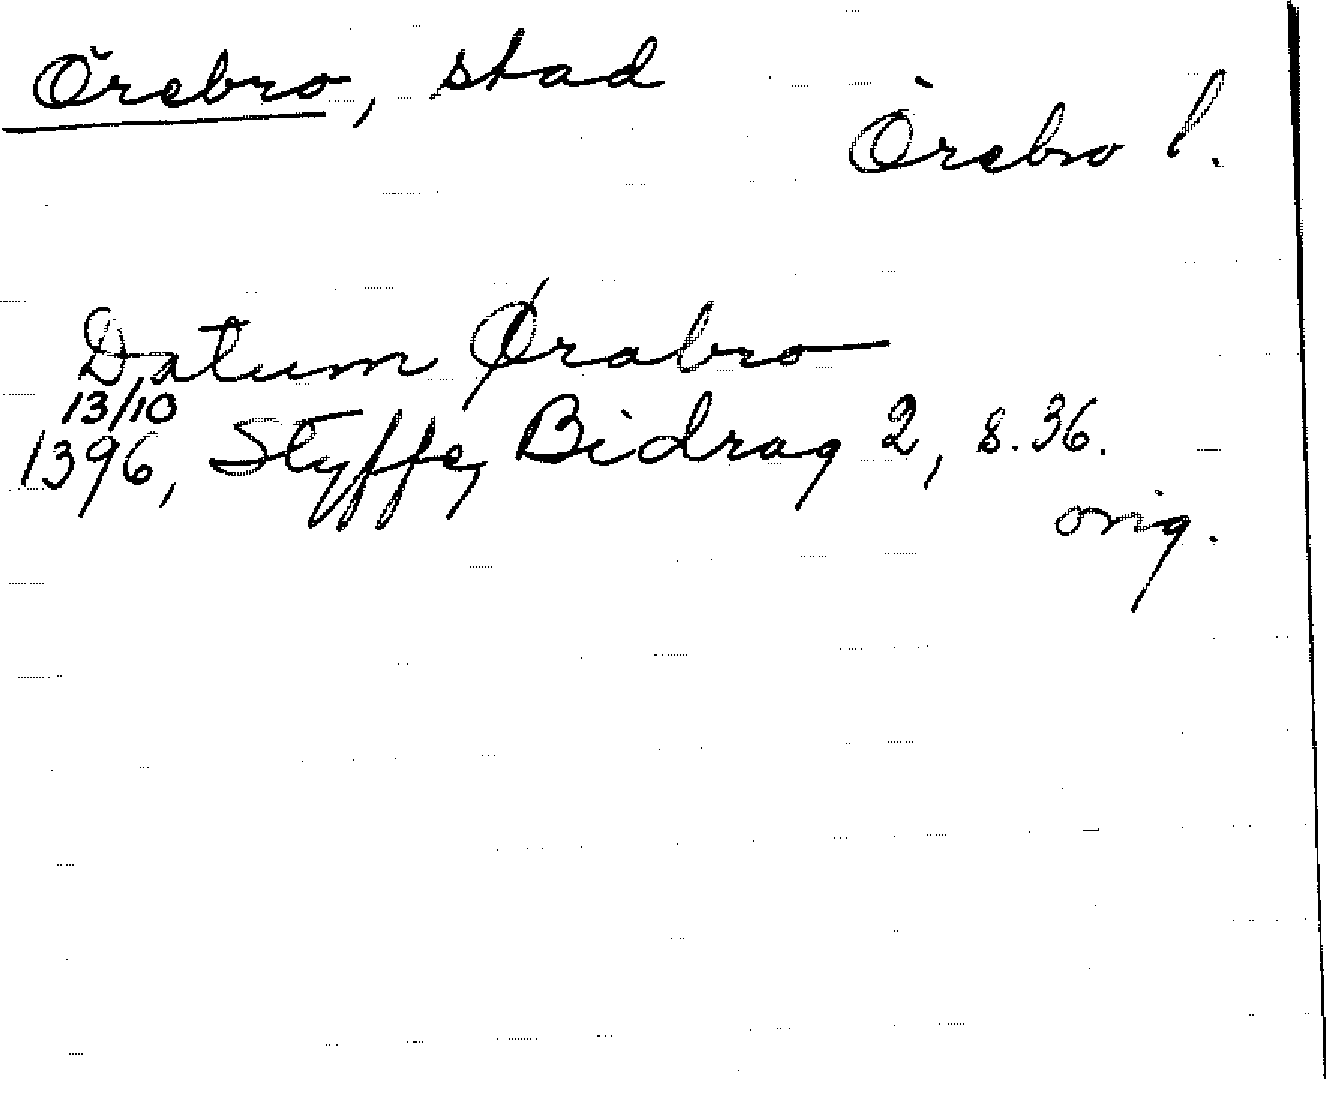 Örebro, stad
Örebro l.
Datum Ørabro
13/10
1396, Styffe, Bidrag 2, s. 36.
orig.